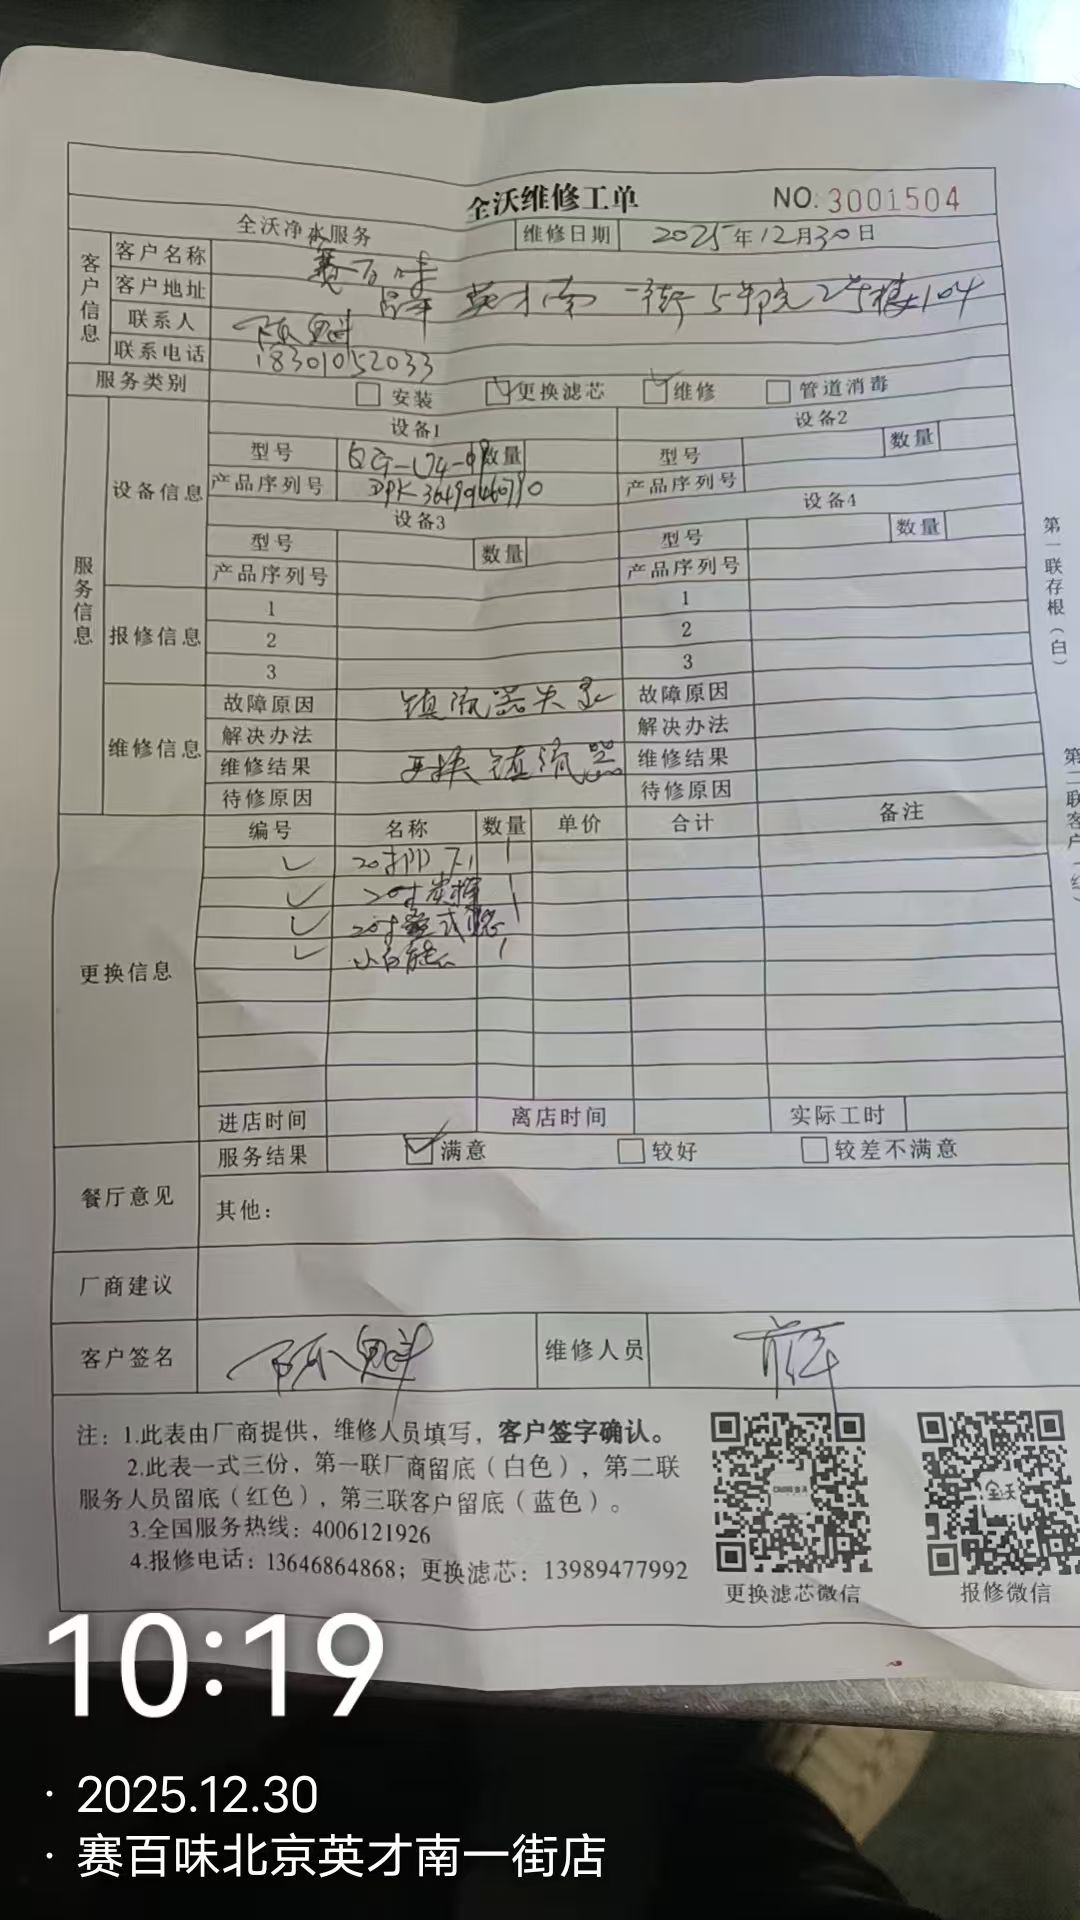 全沃维修工单
NO: 3001504
全沃净水服务 维修日期 2025年12月30日
客户信息
客户名称 赛百味
客户地址 昌平 英才南一街5号院2号楼104
联系人
联系电话 18301052033
服务类别 安装 更换滤芯 维修 管道消毒
服务信息
设备信息
设备1 设备2
型号 数量 型号 数量
产品序列号 产品序列号
设备3 设备4
型号 数量 型号 数量
产品序列号 产品序列号
报修信息
1 1
2 2
3 3
维修信息
故障原因 镇流器失灵 故障原因
解决办法 解决办法
维修结果 更换镇流器 维修结果
待修原因 待修原因
更换信息
编号 名称 数量 单价 合计 备注
20寸 1
20寸炭棒 1
20寸 1
1
进店时间 离店时间 实际工时
餐厅意见
服务结果 满意 较好 较差不满意
其他：
厂商建议
客户签名 维修人员
注：1.此表由厂商提供，维修人员填写，客户签字确认。
2.此表一式三份，第一联厂商留底（白色），第二联
服务人员留底（红色），第三联客户留底（蓝色）。
3.全国服务热线：4006121926
4.报修电话：13646864868；更换滤芯：13989477992
更换滤芯微信 报修微信
第一联存根（白）
第二联客户（红）
10:19
· 2025.12.30
· 赛百味北京英才南一街店